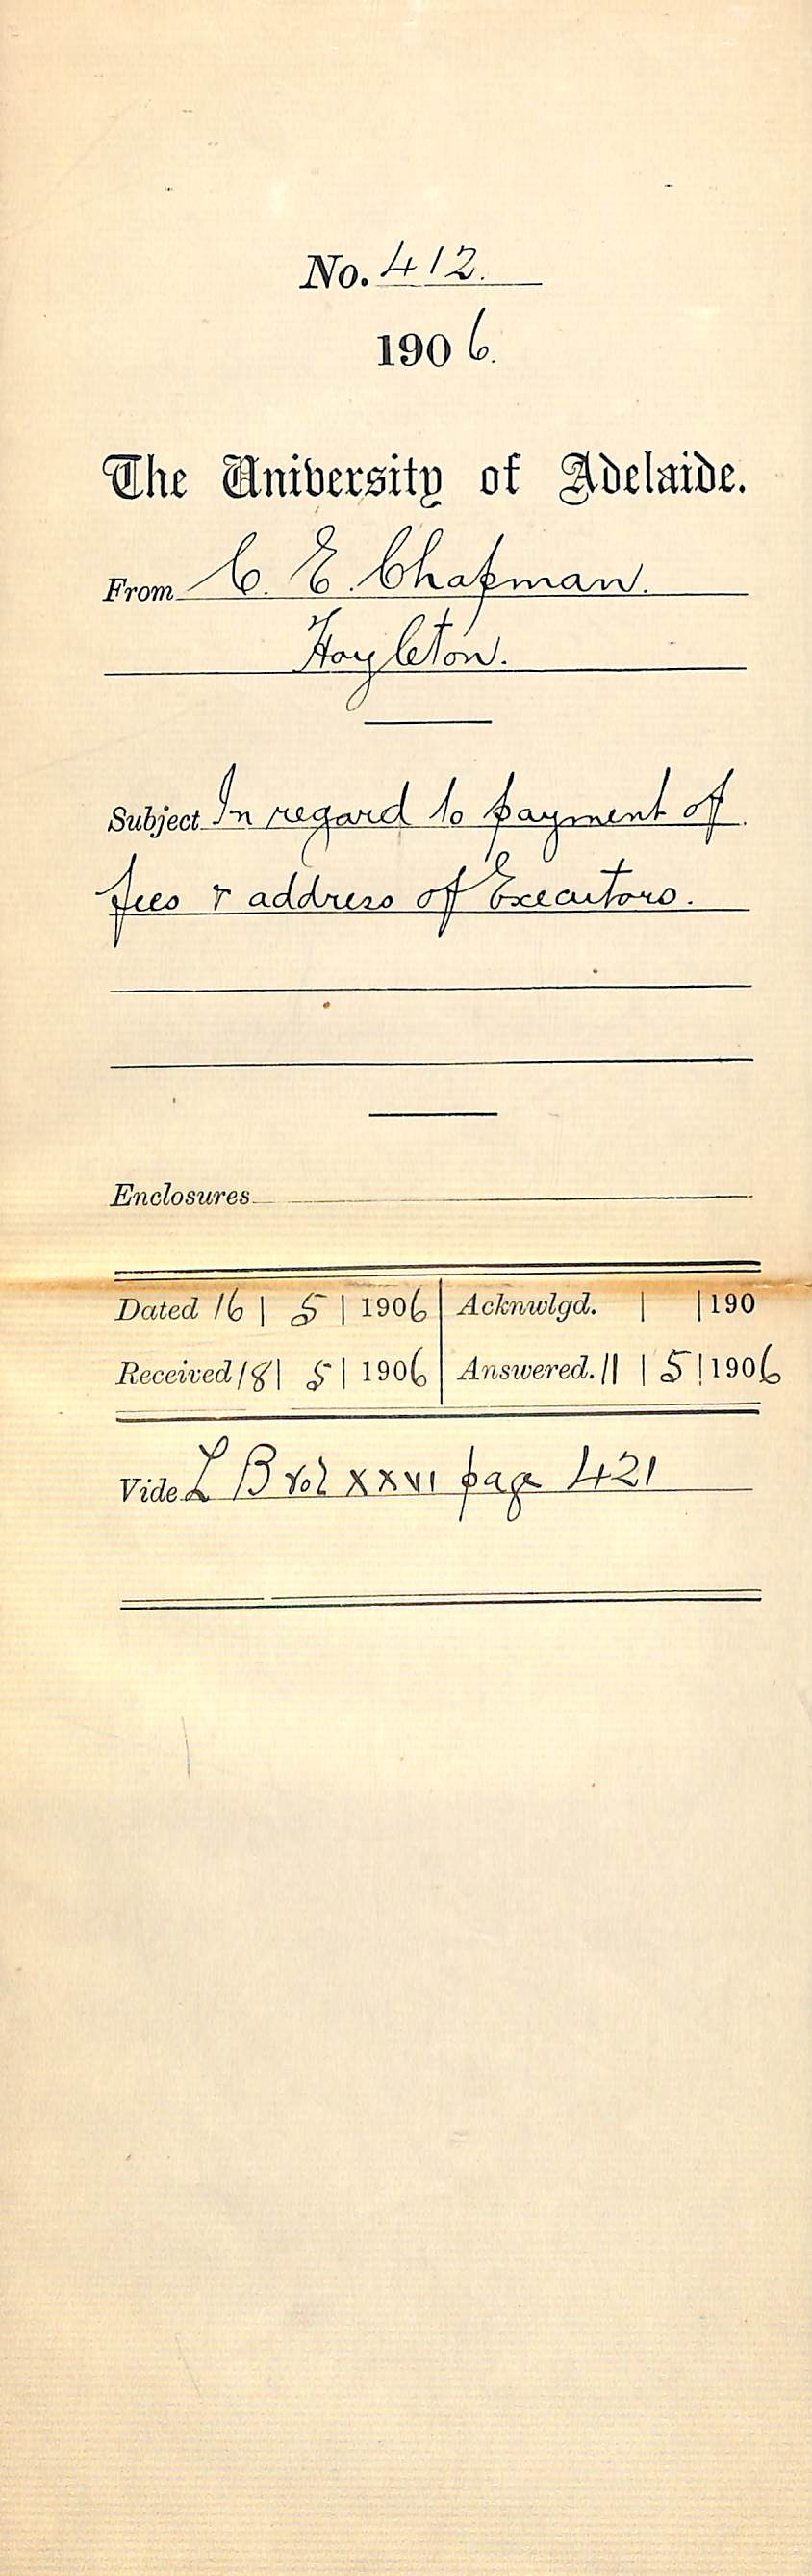 No. 412.
1906.
The University of Adelaide.
From C. E. Chapman.
Hoyleton.
Subject In regard to payment of
fees & address of Executors.
Enclosures
Dated 16 | 5 | 1906 Acknwlgd. | | 190
Received 18 | 5 | 1906 Answered. 11 | 5 | 1906
Vide L B vol XXVI page 421